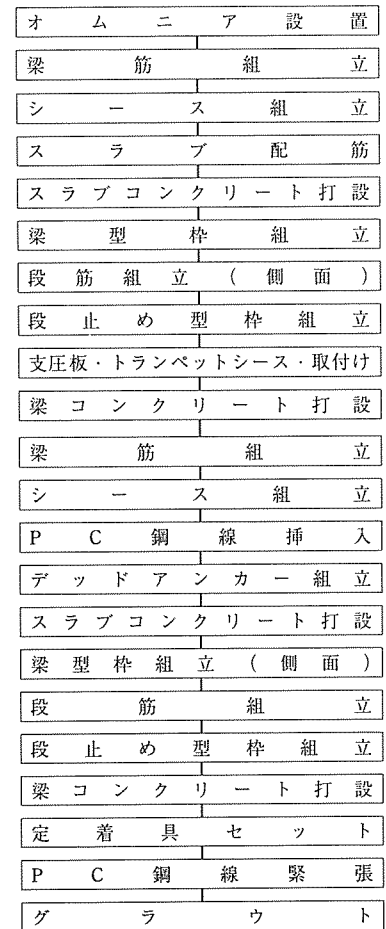 オムニア設置
梁筋組立
シース組立
スラブ配筋
スラブコンクリート打設
梁型枠組立
段筋組立(側面)
段止め型枠組立
支圧板・トランペットシース・取付け
梁コンクリート打設
梁筋組立
シース組立
PC鋼線挿入
デッドアンカー組立
スラブコンクリート打設
梁型枠組立(側面)
段筋組立
段止め型枠組立
梁コンクリート打設
定着具セット
PC鋼線緊張
グラウト